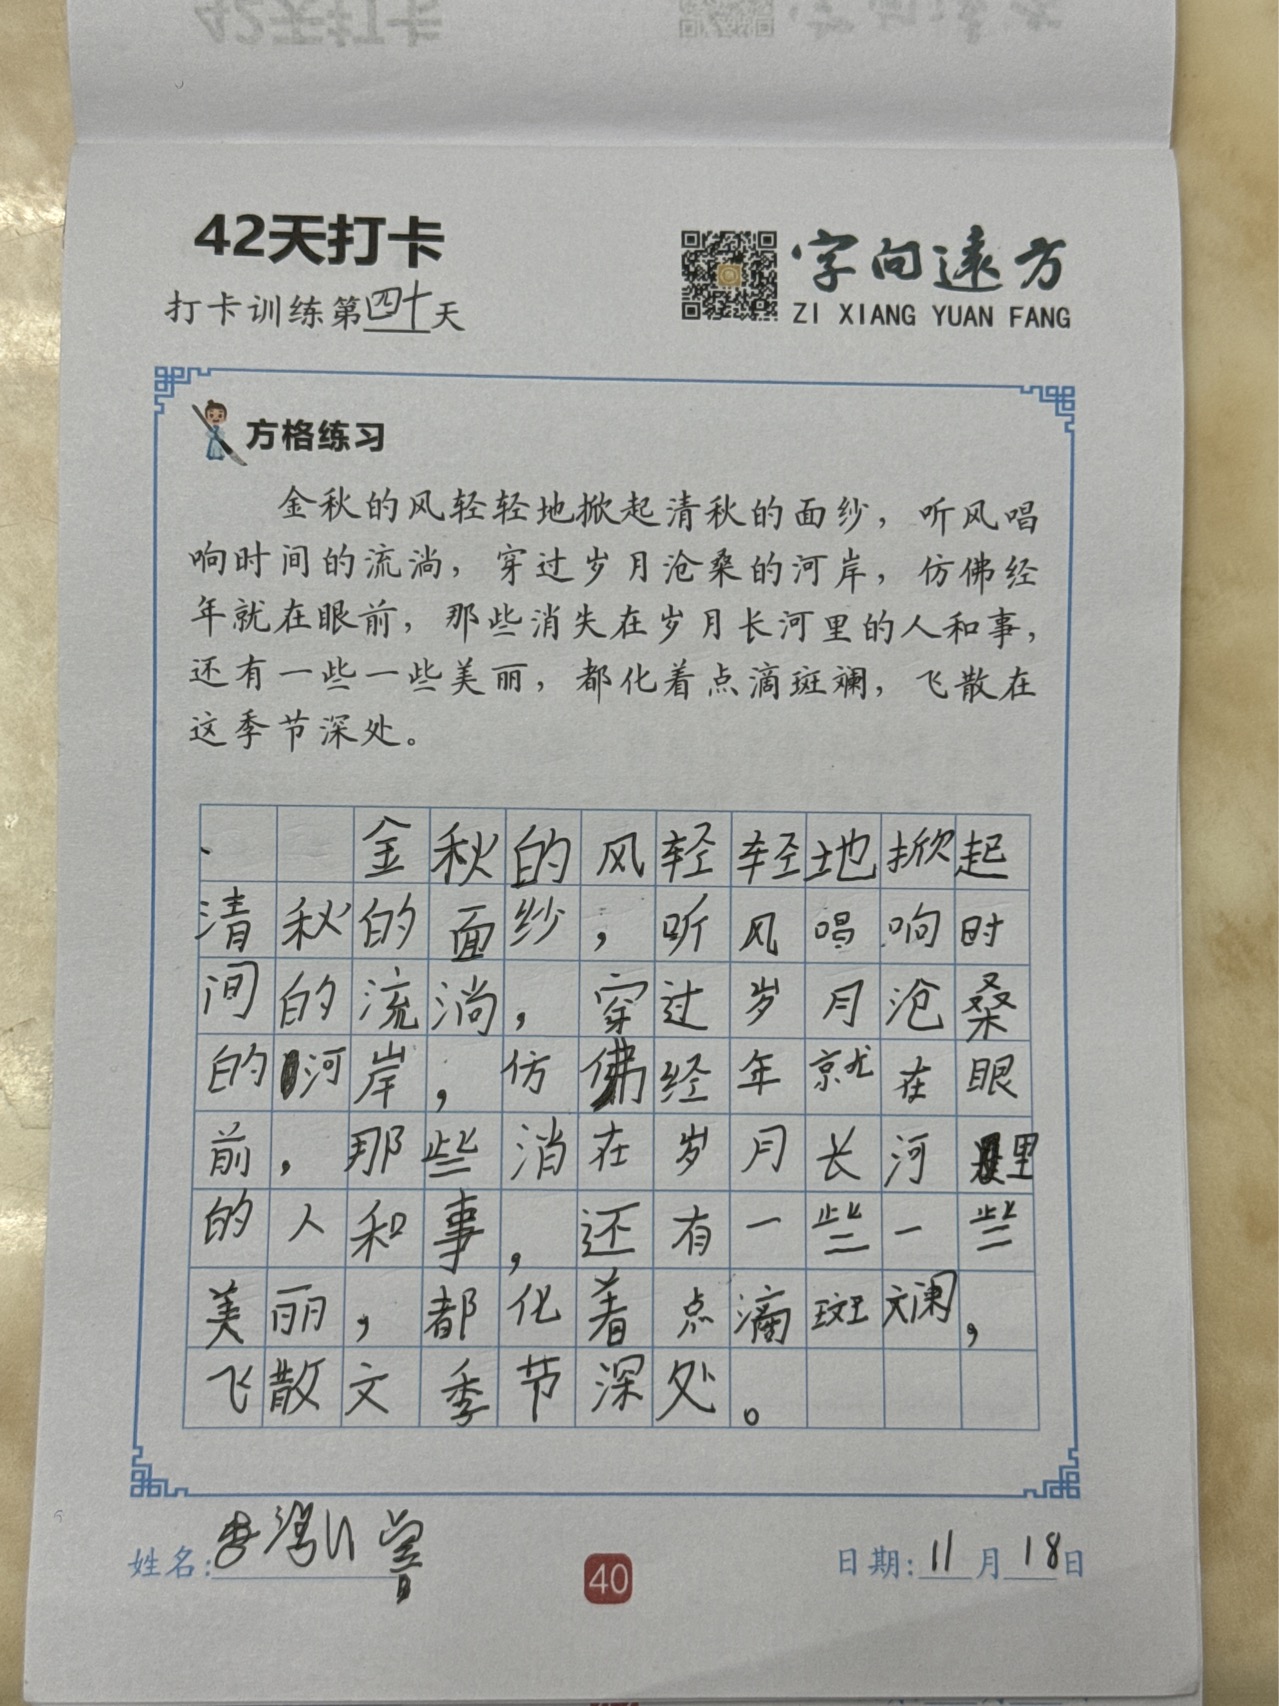 42天打卡
字向遠方
打卡训练第四十天
ZI XIANG YUAN FANG
方格练习
金秋的风轻轻地掀起清秋的面纱，听风唱
响时间的流淌，穿过岁月沧桑的河岸，仿佛经
年就在眼前，那些消失在岁月长河里的人和事，
还有一些一些美丽，都化着点滴斑斓，飞散在
这季节深处。
金秋的风轻轻地掀起
清秋的面纱，听风唱响时
间的流淌，穿过岁月沧桑
的河岸，仿佛经年就在眼
前，那些消在岁月长河里
的人和事，还有一些一些
美丽，都化着点滴斑斓，
飞散文季节深处。
姓名：
40
日期：11月18日